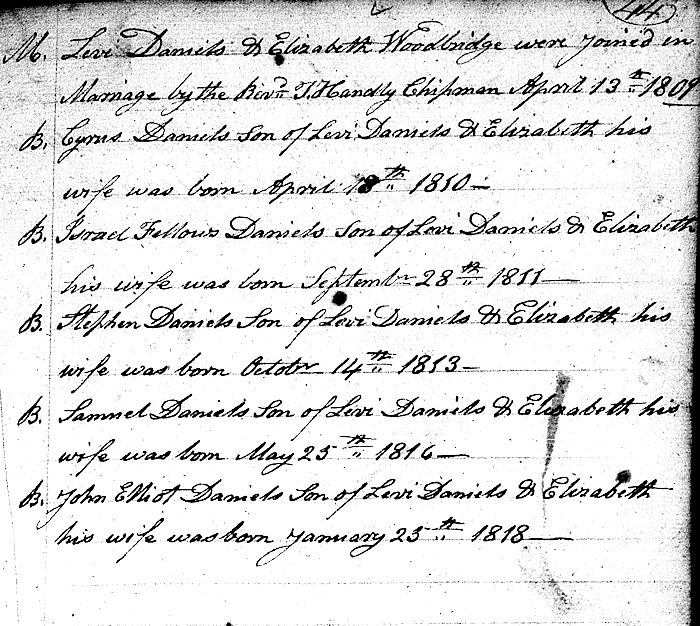 44
M. Levi Daniels & Elizabeth Woodbridge were joined in
Marriage by the Revd. T. Handly Chipman April 13th 1809
B. Cyrus Daniels Son of Levi Daniels & Elizabeth his
wife was born April 18th 1810
B. Israel Fellows Daniels Son of Levi Daniels & Elizabeth
his wife was born Septembr 28th 1811
B. Stephen Daniels Son of Levi Daniels & Elizabeth his
wife was born Octobr 14th 1813
B. Samuel Daniels Son of Levi Daniels & Elizabeth his
wife was born May 25th 1816
B. John Elliot Daniels Son of Levi Daniels & Elizabeth
his wife was born January 25th 1818